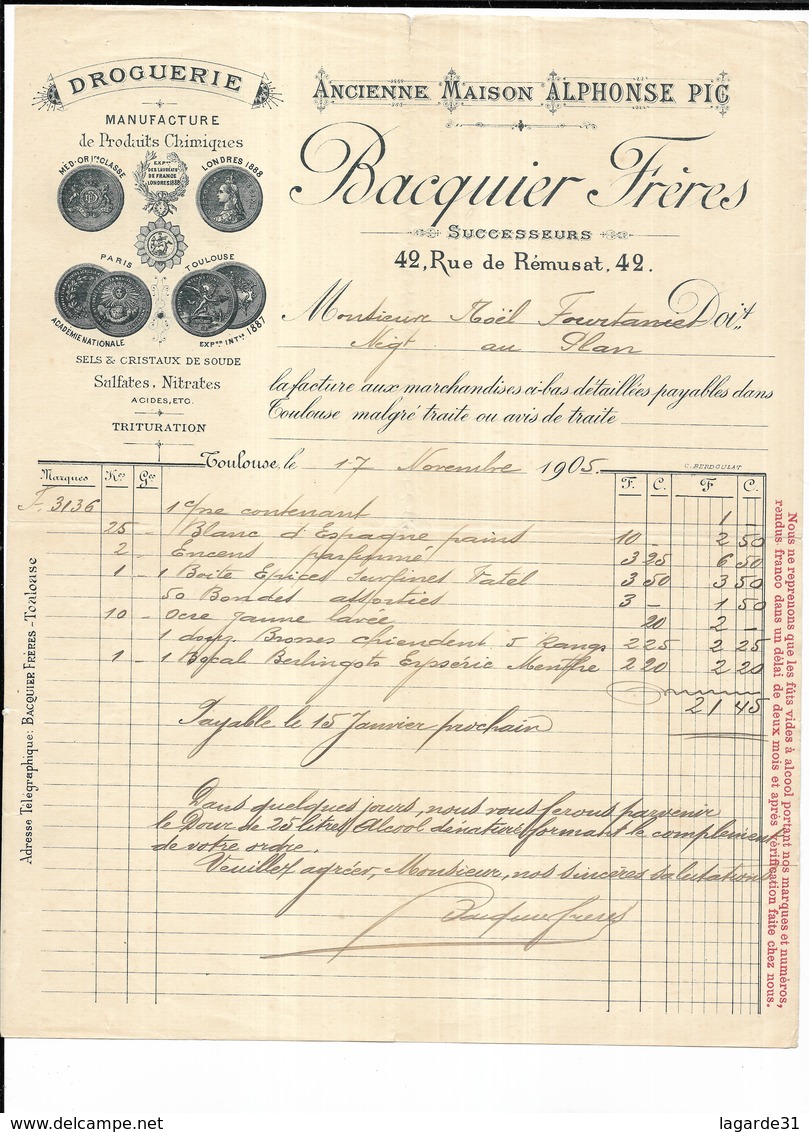 DROGUERIE
MANUFACTURE
de Produits Chimiques
MED. OR 1re CLASSE
EXPon DES LAURÉATS DE FRANCE LONDRES 1888
LONDRES 1888
PARIS
TOULOUSE
ACADEMIE NATIONALE
EXPon INTle 1887
SELS & CRISTAUX DE SOUDE
Sulfates, Nitrates
ACIDES, ETC.
TRITURATION
ANCIENNE MAISON ALPHONSE PIC
Bacquier Frères
SUCCESSEURS
42, Rue de Rémusat, 42.
Monsieur Noël Fourtanier Doit
Négt au Plan
la facture aux marchandises ci-bas détaillées payables dans
Toulouse malgré traite ou avis de traite
Toulouse, le 17 Novembre 1905.
C. BERDOULAT
Marques Kos Ges F. C. F C.
F. 3136 1 c/ne contenant 1 -
25 - Blanc d'Espagne pains 10 - 2 50
2 - Encens parfumé 3 25 6 50
1 - 1 Boite Epices Surfines Fatel 3 50 3 50
50 Bondes assorties 3 - 1 50
10 - Ocre jaune lavée 20 2 -
1 douz. Brosses chiendent 5 Rangs 2 25 2 25
1 - 1 Bocal Berlingots Menthe 2 20 2 20
21 45
Payable le 15 Janvier prochain
Dans quelques jours, nous vous ferons parvenir
le Dour de 25 litres Alcool dénaturé formant le complément
de votre ordre.
Veuillez agréer, Monsieur, nos sincères salutations
Bacquier frères
Adresse Télégraphique: BACQUIER FRÈRES - Toulouse
Nous ne reprenons que les fûts vides à alcool portant nos marques et numéros,
rendus franco dans un délai de deux mois et après vérification faite chez nous.
lagarde31